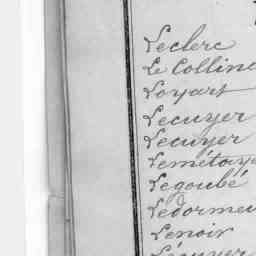 Leclerc
Le Colline
Loyart
Lecuyer
Lecuyer
Lemétaye
Legoubé
Ledormeu
Lenoir
Lécuyer